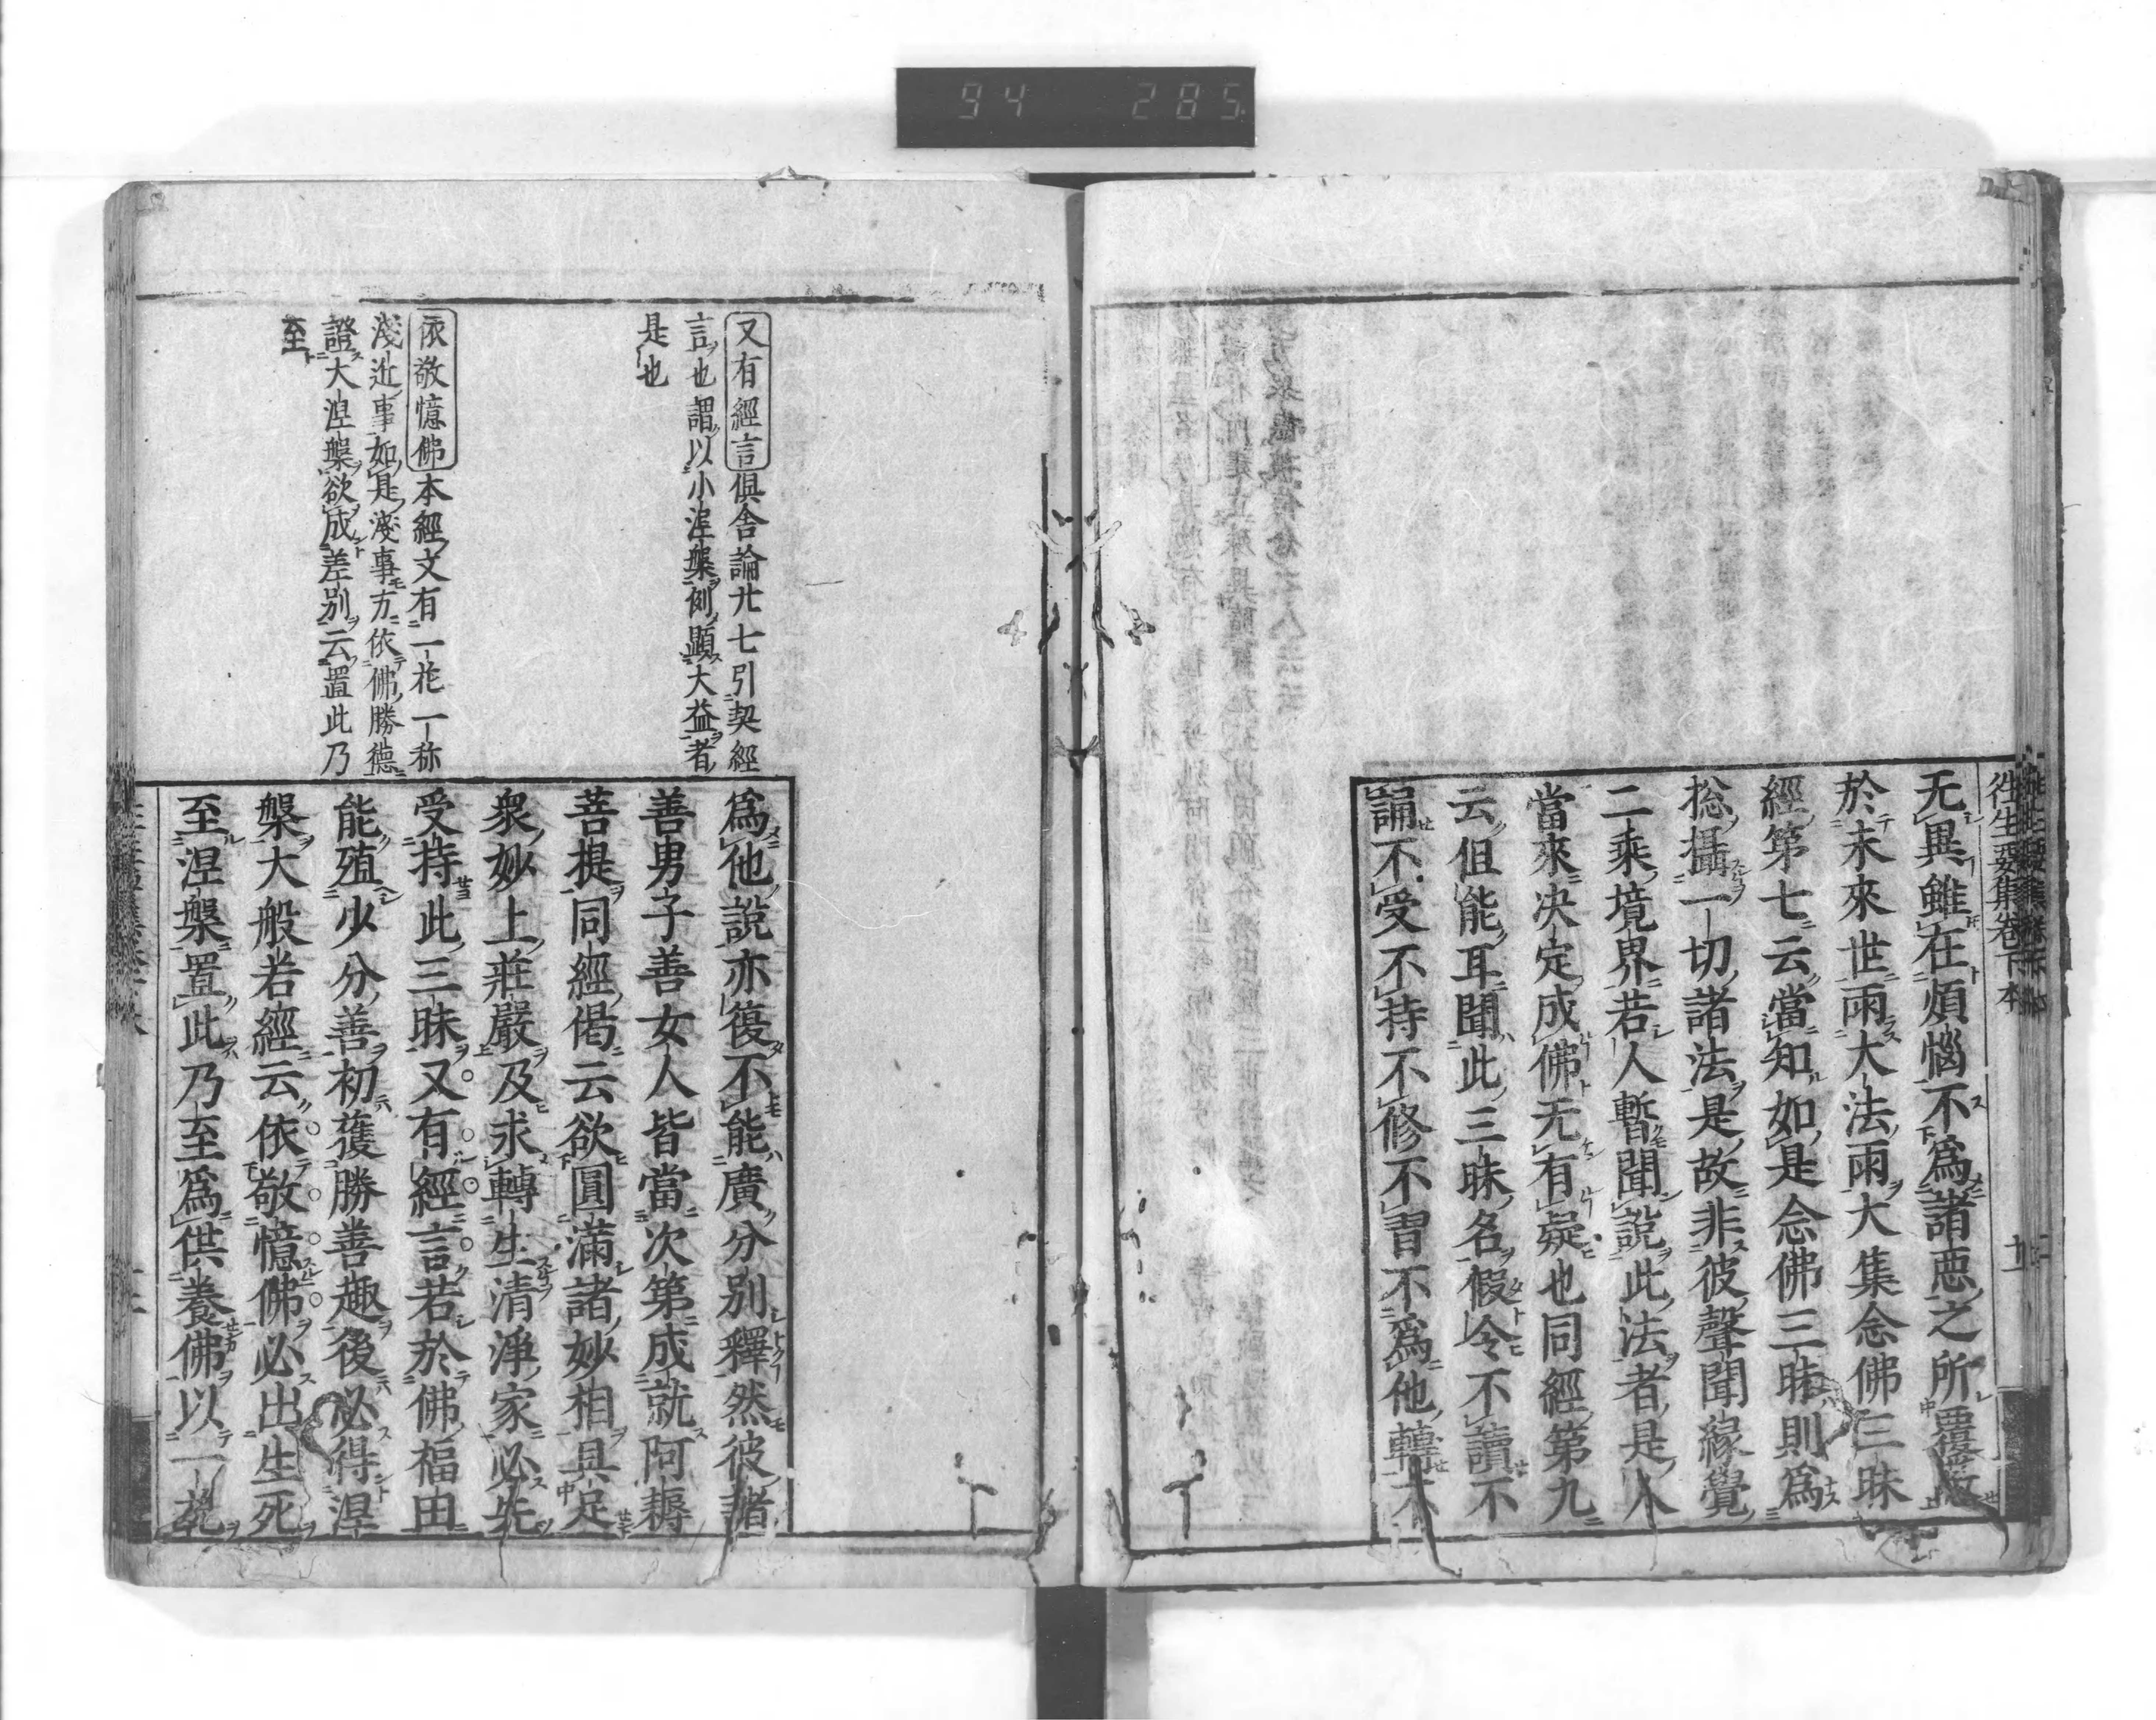 94 285
往生要集卷下本
无異雖在煩惱不爲諸惡之所覆蔽
於末來世雨大法雨大集念佛三昧
經第七云當知如是念佛三昧則爲
捴攝一切諸法是故非彼聲聞緣覺
二乘境界若人暫聞說此法者是人
當來决定成佛无有疑也同經第九
云但能耳聞此三昧名假令不讀不
誦不受不持不修不習不爲他轉不
爲他說亦復不能廣分別釋然彼諸
善男子善女人皆當次第成就阿耨
菩提同經偈云欲圓滿諸妙相具足
衆妙上莊嚴及求轉生清淨家必先
受持此三昧又有經言若於佛福田
能殖少分善初獲勝善趣後必得涅
槃大般若經云依敬憶佛必出生死
至涅槃置此乃至爲供養佛以一花
又有經言俱舍論廿七引契經
言也謂以小涅槃例顯大益者
是也
依敬憶佛本經文有一花一称
淺近事如是淺事方依佛勝德
證大涅槃欲成差別云置此乃
至